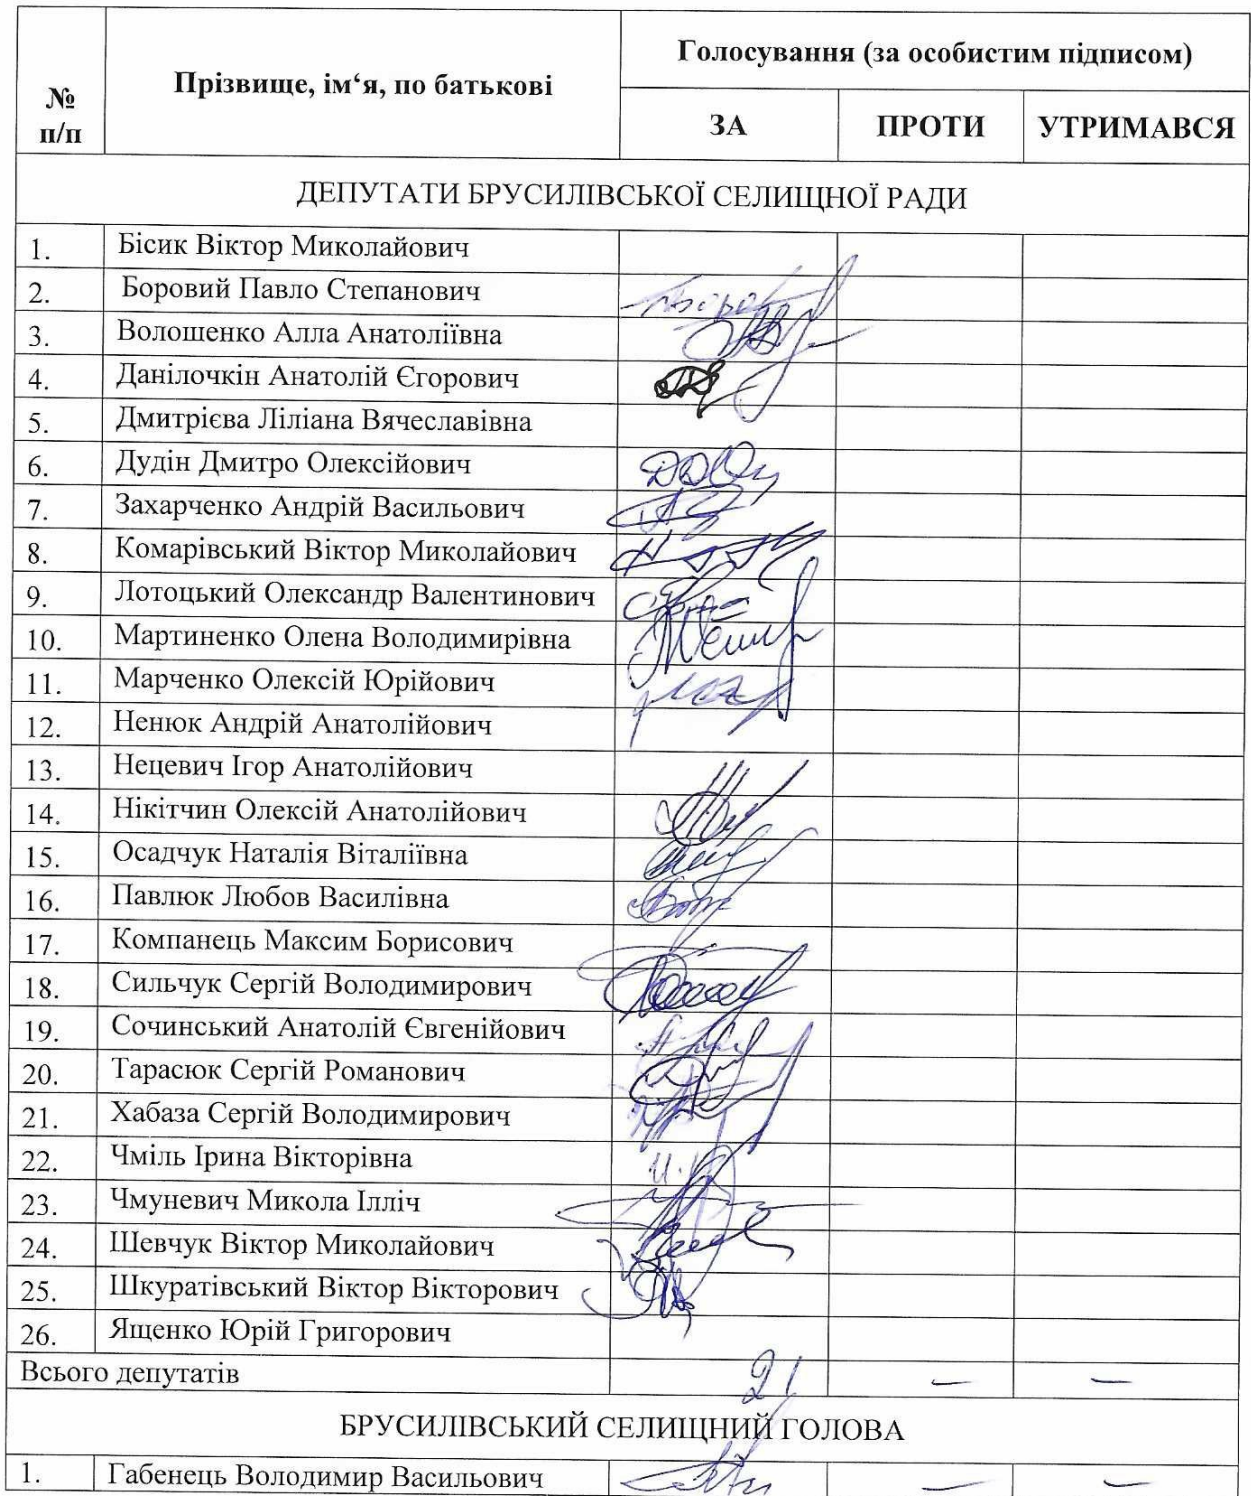 № п/п Прізвище, ім‘я, по батькові Голосування (за особистим підписом)
ЗА ПРОТИ УТРИМАВСЯ
ДЕПУТАТИ БРУСИЛІВСЬКОЇ СЕЛИЩНОЇ РАДИ
1. Бісик Віктор Миколайович
2. Боровий Павло Степанович
3. Волошенко Алла Анатоліївна
4. Данілочкін Анатолій Єгорович
5. Дмитрієва Ліліана Вячеславівна
6. Дудін Дмитро Олексійович
7. Захарченко Андрій Васильович
8. Комарівський Віктор Миколайович
9. Лотоцький Олександр Валентинович
10. Мартиненко Олена Володимирівна
11. Марченко Олексій Юрійович
12. Ненюк Андрій Анатолійович
13. Нецевич Ігор Анатолійович
14. Нікітчин Олексій Анатолійович
15. Осадчук Наталія Віталіївна
16. Павлюк Любов Василівна
17. Компанець Максим Борисович
18. Сильчук Сергій Володимирович
19. Сочинський Анатолій Євгенійович
20. Тарасюк Сергій Романович
21. Хабаза Сергій Володимирович
22. Чміль Ірина Вікторівна
23. Чмуневич Микола Ілліч
24. Шевчук Віктор Миколайович
25. Шкуратівський Віктор Вікторович
26. Ященко Юрій Григорович
Всього депутатів 21 – –
БРУСИЛІВСЬКИЙ СЕЛИЩНИЙ ГОЛОВА
1. Габенець Володимир Васильович – –